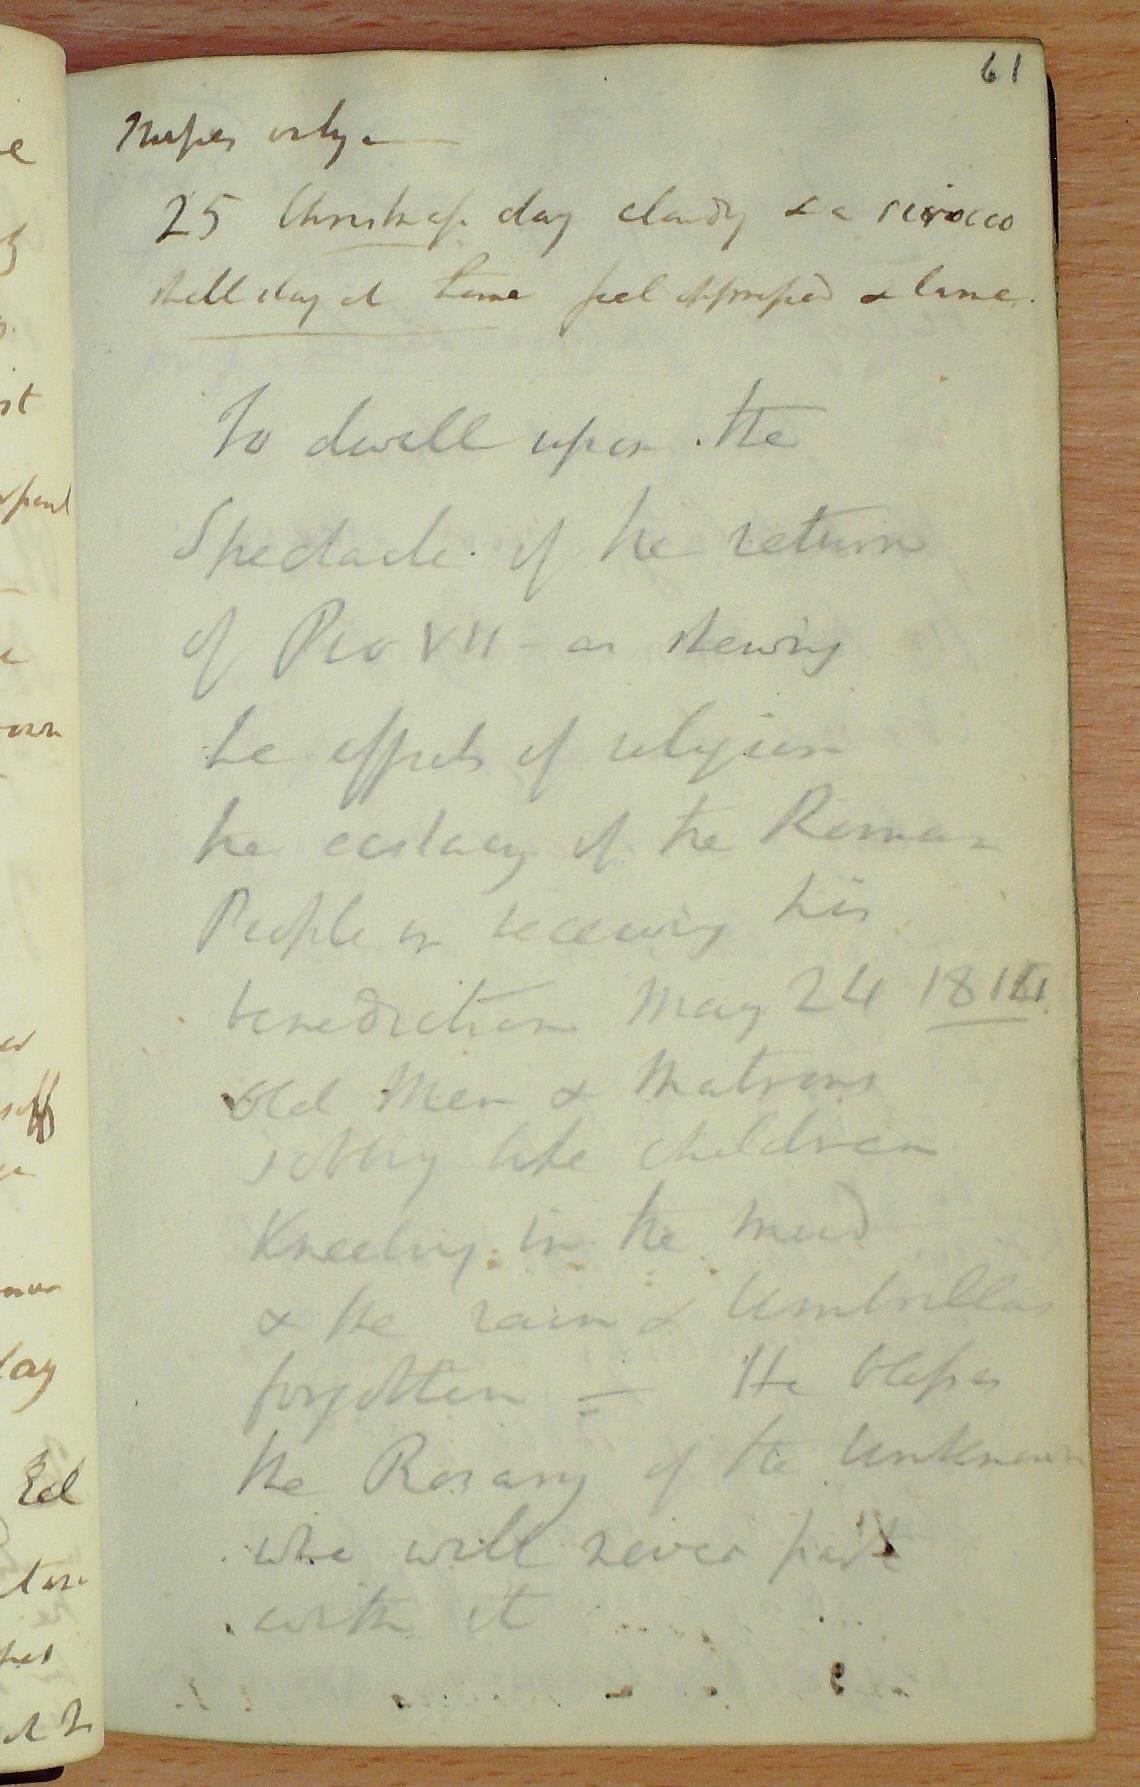 61
only
25 Christmas day cloudy & a scirocco
still stay at home feel oppressed & lame.
To dwell upon the
Spectacle of the return
of Pio VII - as shewing
the effects of religion
the ecstacy of the Roman
People on receiving his
benediction May 24 1814
Old Men & Matrons
sobbing like children
Kneeling in the mud
& the rain & Umbrellas
forgotten = He blesses
the Rosary of the Unknown
who will never part
with it